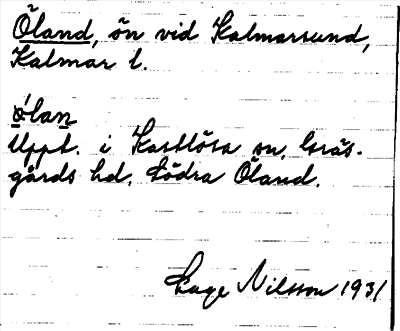 Öland, ön vid Kalmarsund,
Kalmar l.
ö́lan
Uppt. i Kastlösa sn. Gräs-
gårds hd. Södra Öland.
Lage Nilsson 1931